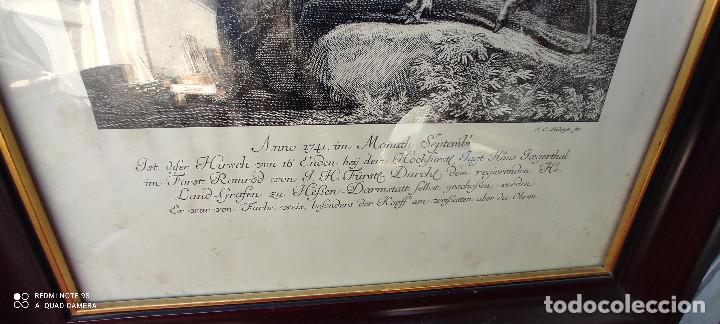 J. E. Ridinger fec.
Anno 1741. im Monath Septemb.
Ist dieser Hirsch von 16 Enden beÿ dem Hochfürstl. Jagt Haus Jägerthal
im Forst Romröd von J. H. Fürstl. Durchl. dem regierenden Hr.
Land-Grafen zu Hessen-Darmstatt selbst geschossen worden.
Er war von Farbe weis, besonders der Kopff am weißesten aber die Ohren.
REDMI NOTE 9S
AI QUAD CAMERA
todocoleccion